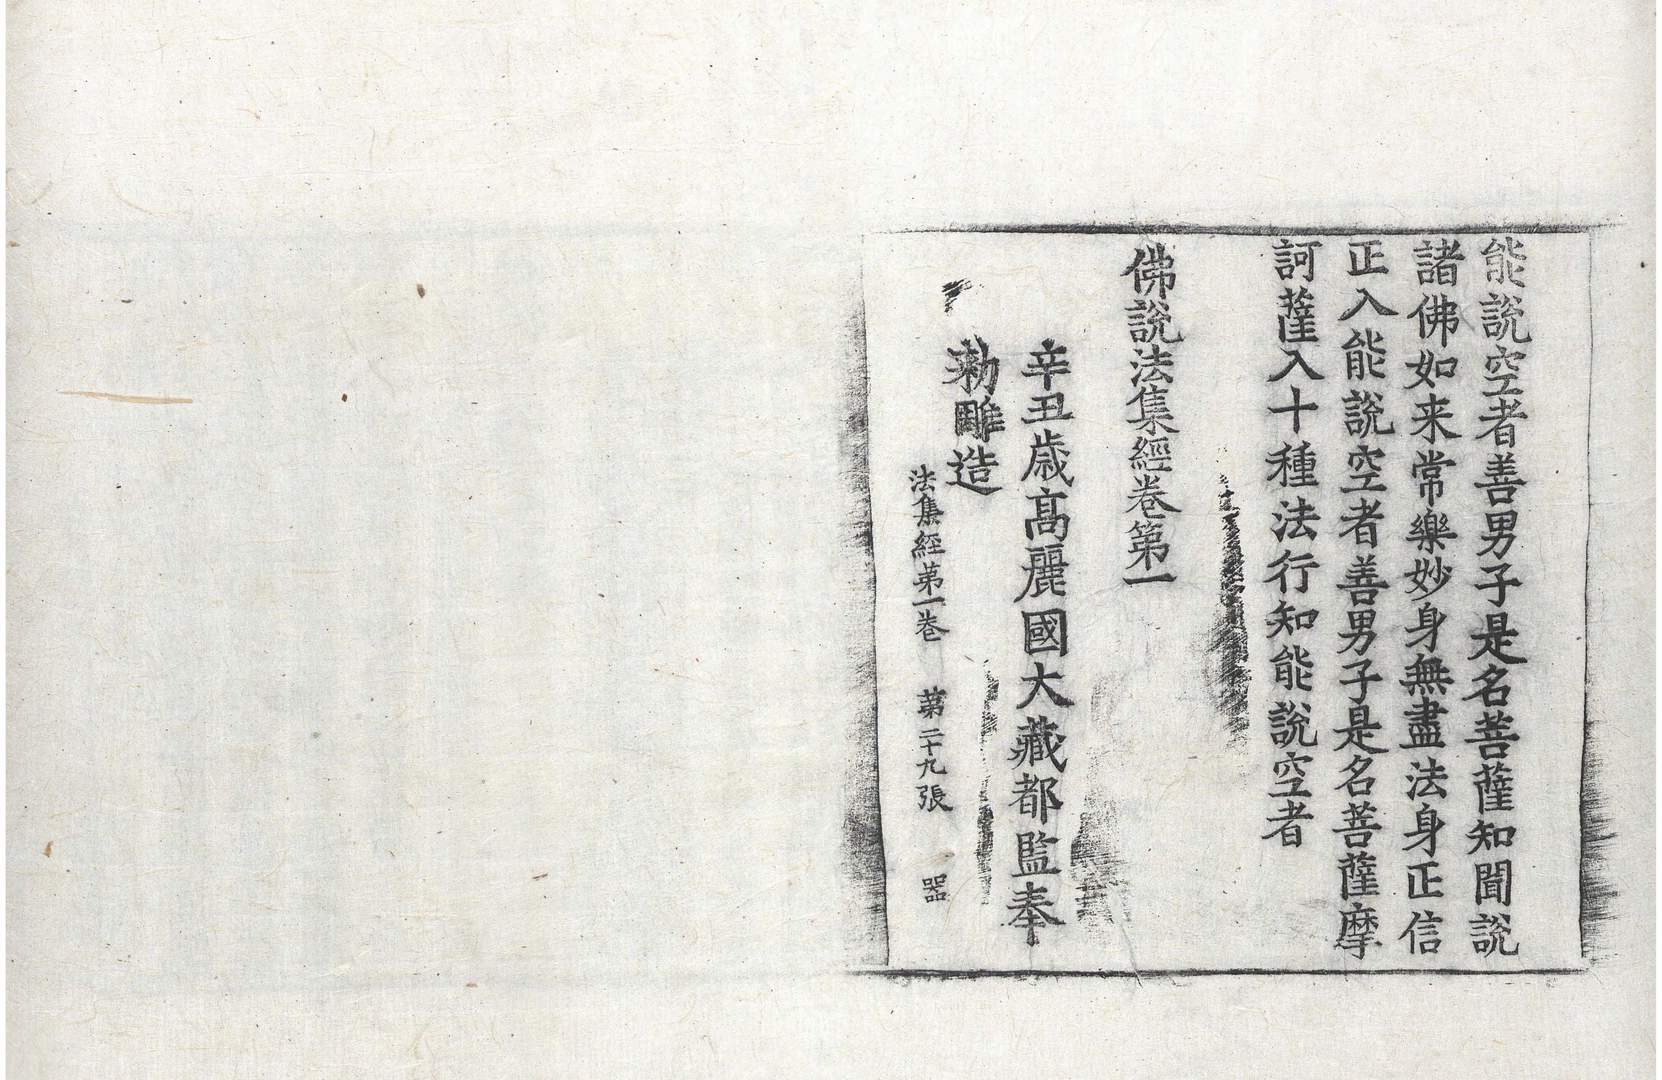 能說空者善男子是名菩薩知聞說
諸佛如来常樂妙身無盡法身正信
正入能說空者善男子是名菩薩摩
訶薩入十種法行知能說空者
佛說法集經卷第一
辛丑歳髙麗國大藏都監奉
勑雕造
法集経苐一卷　苐二十九張　器